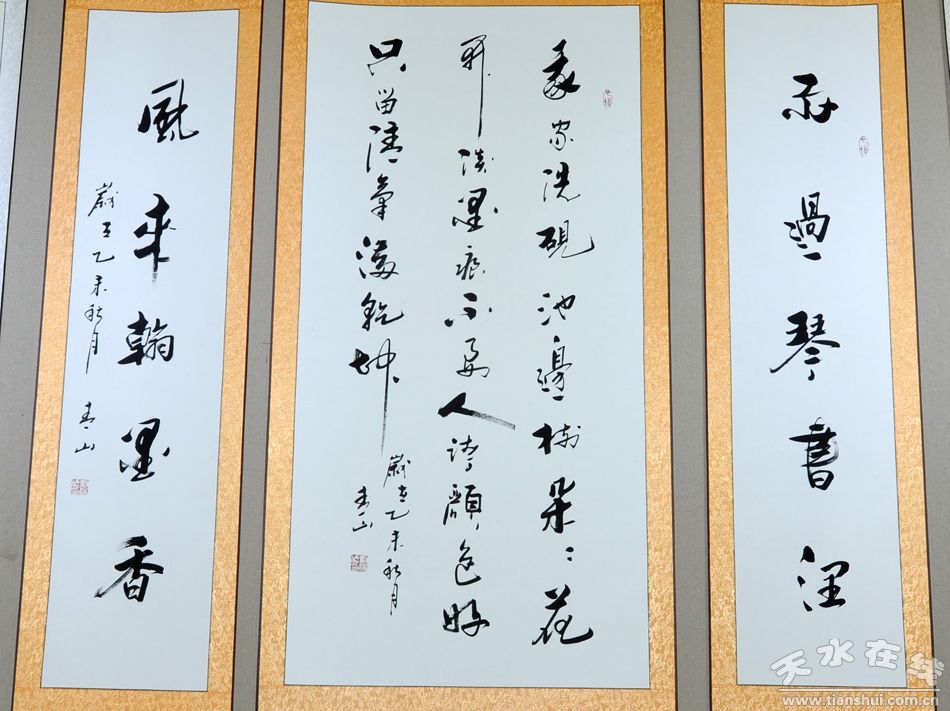 雨過琴書潤
我家洗硯池邊樹朵々花
开淡墨痕不要人誇顏色好
只留清氣滿乾坤
歲在乙未秋月
青山
風來翰墨香
歲在乙未秋月 青山
天水在线
www.tianshui.com.cn